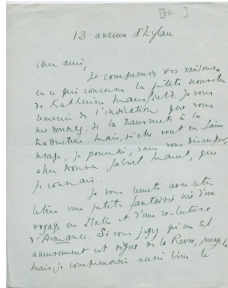 [54 ]
13 avenue d'Eylau
Cher ami,
Je comprends vos raisons
en ce qui concerne la petite nouvelle
de Katherine Mansfield. Je vous
remercie de l'indication que vous
me donnez. de la transmettre à la
traductrice. Mais, si elle veut en faire
usage, je pourrai, sans vous déranger,
chez Gabriel Marcel, que
je connais.
Je vous envoie avec cette
lettre une petite fantaisie née d'un
voyage en Italie et d'une re-lecture
d'Armance. Si vous jugez qu'un tel
amusement est digne de la Revue,
mais je comprendrai aussi bien le